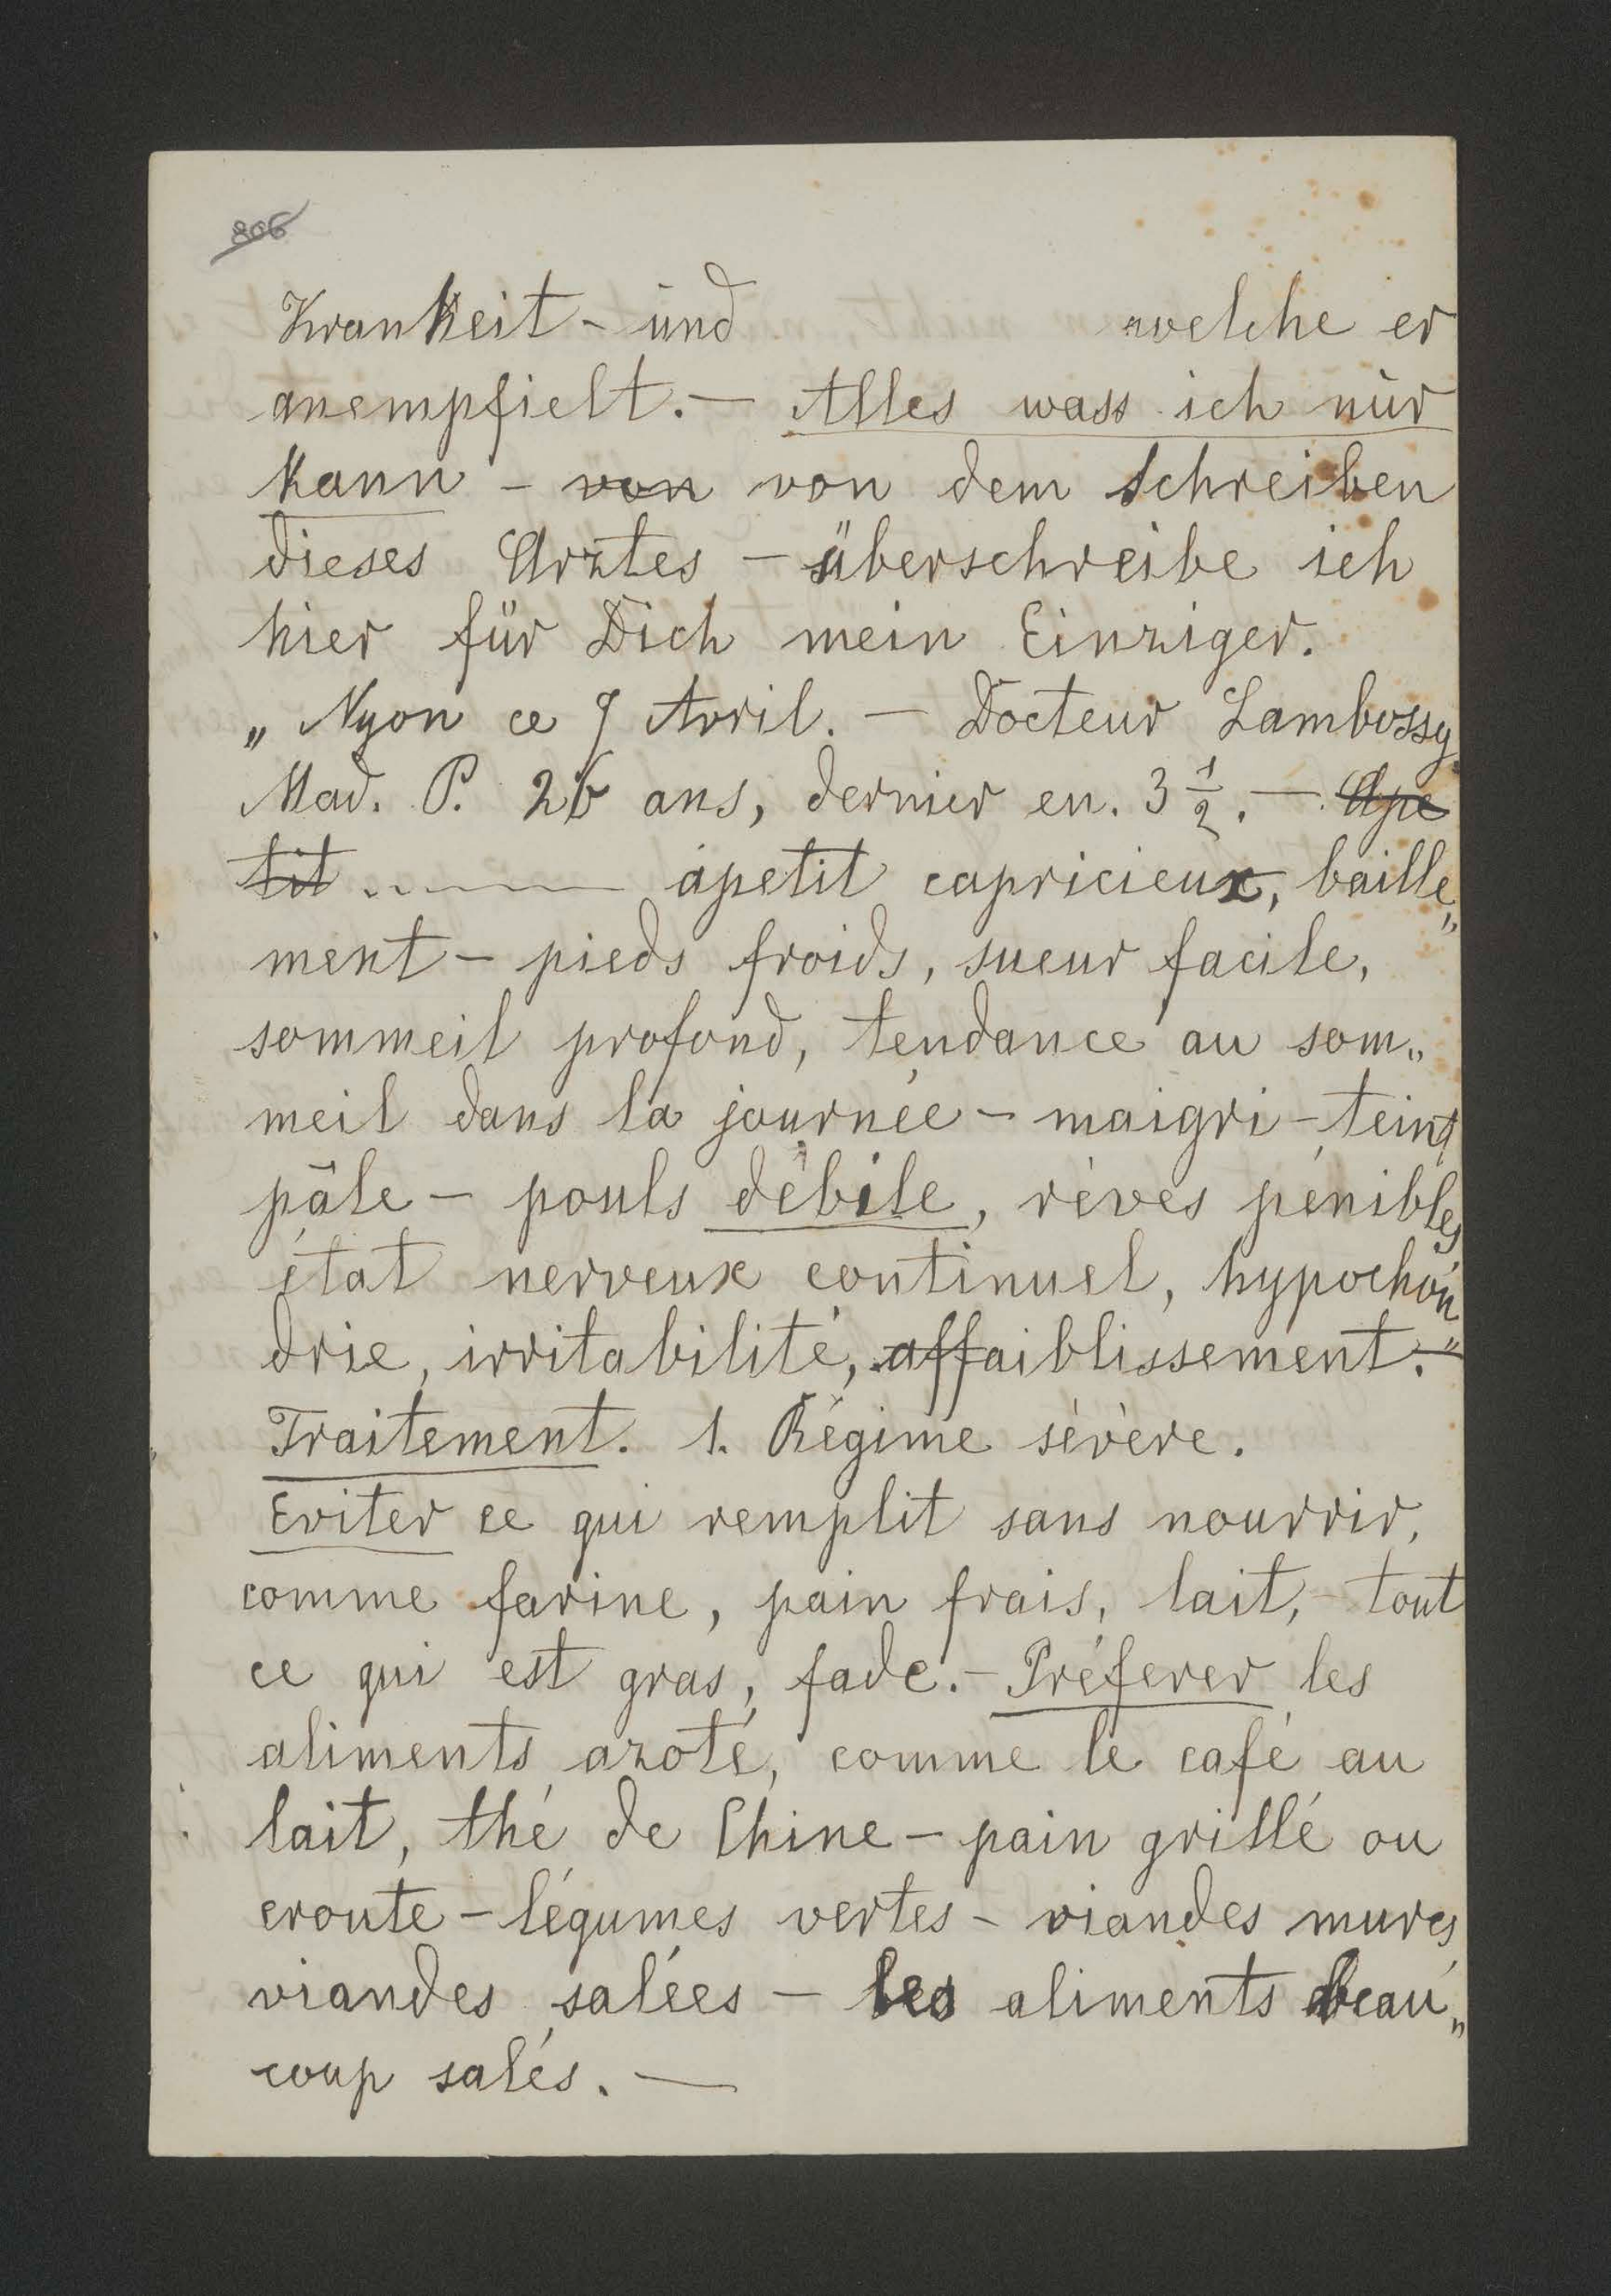 806
Krankeit - und welche er
anempfielt. — Alles wass ich nur
kann - von von dem Schreiben
dieses Arztes - überschreibe ich
hier für Dich mein Einziger.
„ Nyon ce 7 Avril. — Docteur Lambossy
Mad. P. 26 ans, dernier en. 3 1/2. — Ape
tit ....—— apetit capricieux, baille„
ment - pieds froids, sueur facile,
sommeil profond, tendance au som„
meil dans la journée - maigri - teint
pâle - pouls débile, rèves pénibles
état nerveux continuel, hypochon„
drie, irritabilité, affaiblissement. —
Traitement. 1. Régime sévère.
Eviter ce qui remplit sans nourrir,
comme farine, pain frais, lait, tout
ce qui est gras, fade. - Préferer les
aliments azoté, comme le café au
lait, thé de Chine - pain grillé ou
croute - légumes vertes - viandes mures
viandes salées - les aliments beau„
coup salés. —